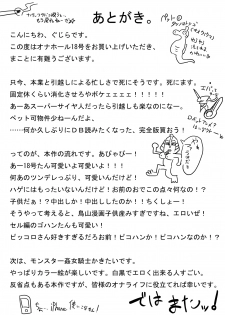 あとがき。
こんにちわ、ぐじらです。
この度はオナホール18号をお買い上げいただき、
まことに有難うございます。
只今、本業と引越しによる忙しさで死にそうです。死にます。
固定休くらい消化させろやボケェェェ！！！！！
あーあスーパーサイヤ人だったら引越しも楽なのになー。
ペット可物件少ねーんだよ。
……何か久しぶりにDBみたくなった、完全版買おう！
ってのが、本作の流れです。あびゃびー！
あー18号たん可愛いよ可愛いよ！！
何あのツンデレっぷり、可愛いんだけど！
ハゲにはもったいないんだけど！お前のおでこの点々何なの！？
子供だぁ！？中出しか！中出ししたのか！ちくしょー！
そうやって考えると、鳥山漫画子供産みすぎですね、エロいぜ！
セル編のゴハンたんも可愛い！
ピッコロさん好きすぎるだろお前！ピコハンか！ピコハンなのか！？
次は、モンスター姦女騎士かきたいです。
やっぱりカラー絵が楽しいです。白黒でエロく出来る人すごい。
反省点もある本作ですが、皆様のオナライフに役立てれば幸いです。
ではまたッ！